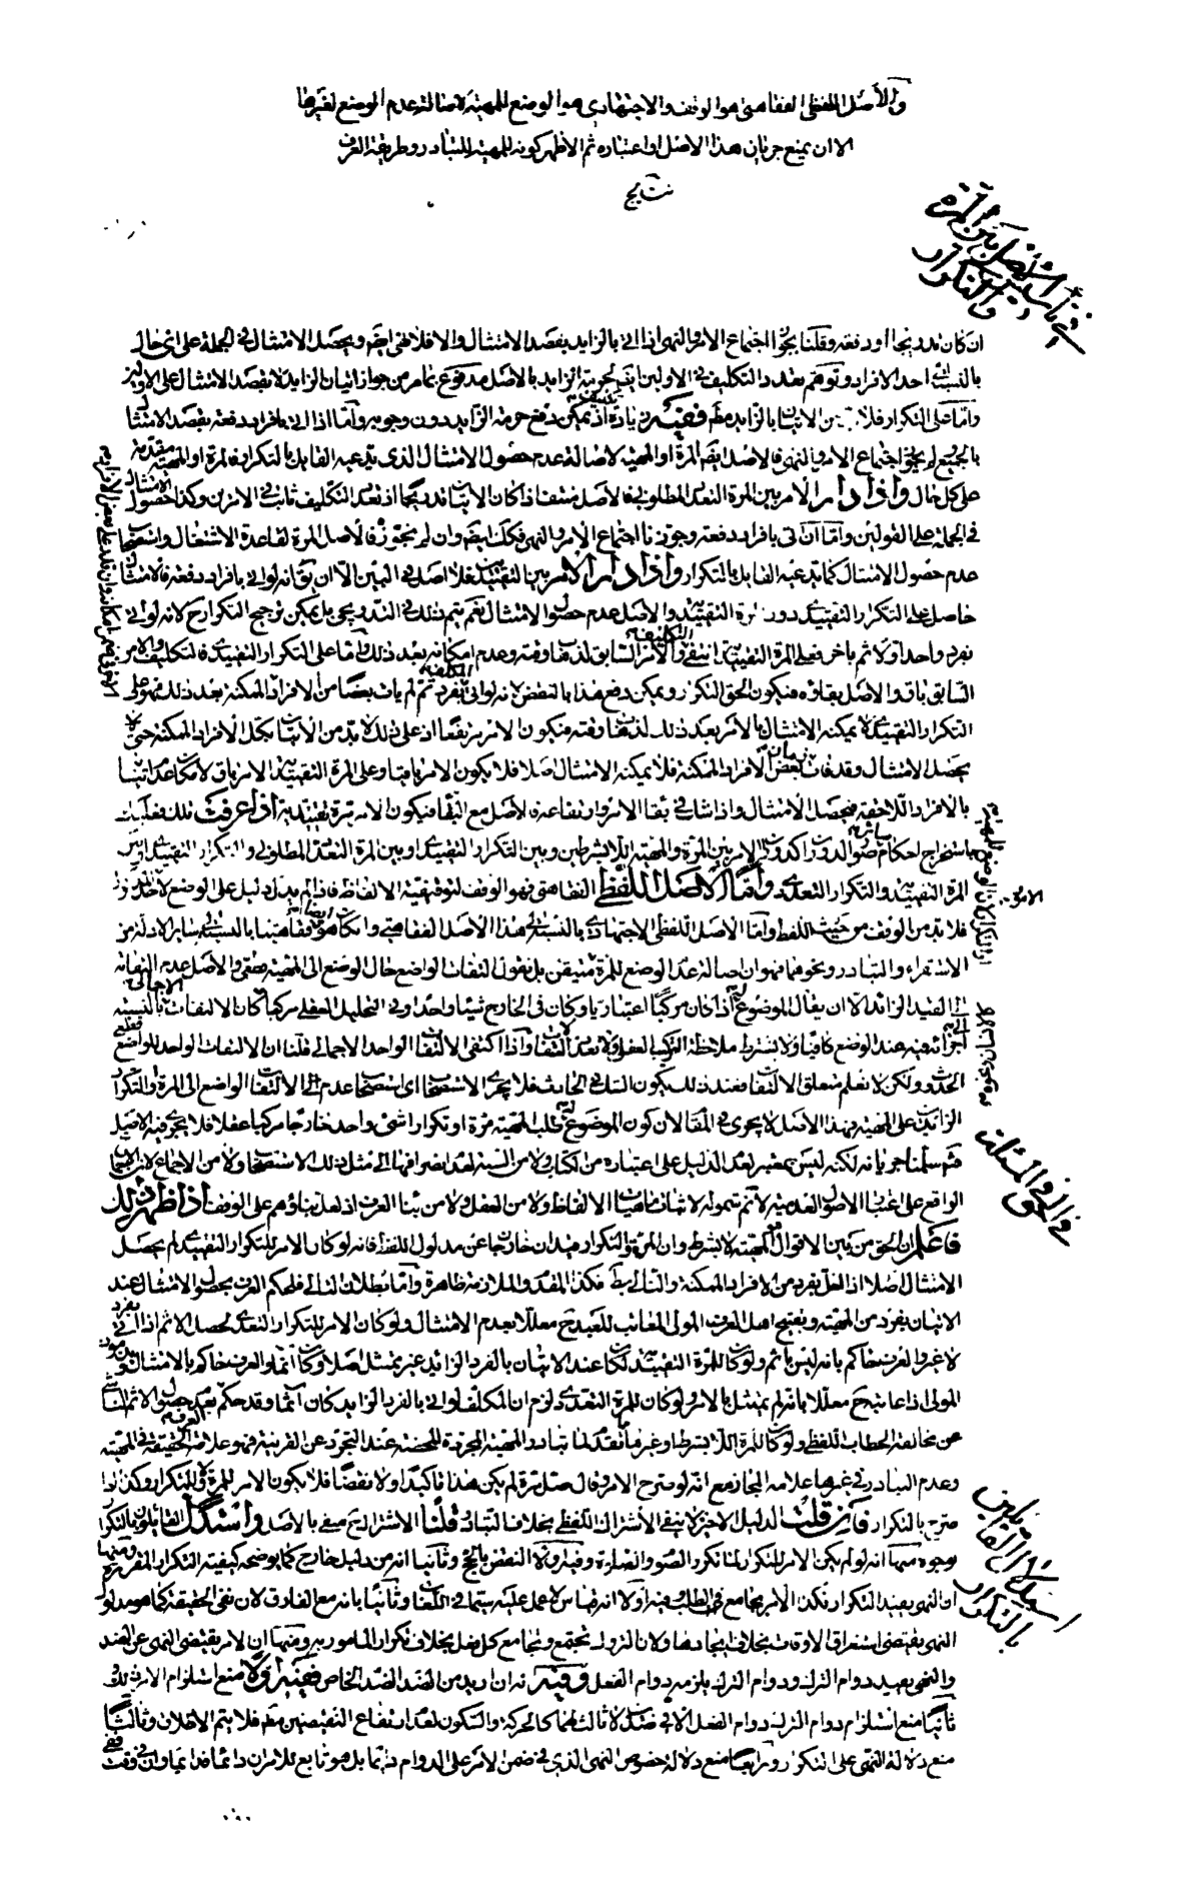 والأصل اللفظي الفقاهتي هو الوقف والاجتهادي هو الوضع للمهية لاصالة عدم الوضع لغيرها
الا ان يمنع جريان هذا الاصل او اعتباره ثم الاظهر كونه للمهية للتبادر وطريقة العرف
نتايج
في تأسيس الاصل بين المرة
والتكرار
ان كان تدريجا او دفعة وقلنا بجواز اجتماع الامر والنهى اذا اتى بالزايد بقصد الامتثال والا فلا نفى ايضا ويحصل الامتثال في الجملة على اى حال
بالنسبة الى احد الافراد وتوهم تعدد التكليف في الاولين ايضا لحرمة الزايد بالاصل مدفوع بما مر من جواز اتيان الزايد لا بقصد الامتثال على الاولين
واما على التكرار فلا الاتيان بالزايد ففيه زيادة تكليف اذ يمكن رفع حرمة الزايد دون وجوبه واما اذا اتى بافراد دفعة بقصد الامتثال
بالجميع لم يجز اجتماع الامر والنهى فالاصل ايضا المرة او المهية لاصالة عدم حصول الامتثال الذى يدعيه القايل بالتكرار فالمرة او المهية مقدمة
على كل حال واذا دار الامر بين المرة التعدد المطلوبى فالاصل مستفاد اذ كان الاتيان تدريجا اذ تعدد التكليف ثابت في الامرين وكذا حصول الامتثال
في الجملة على القولين واما ان اتى بافراد دفعة وجوزنا اجتماع الامر والنهى فكك ايضا وان لم نجوز فالاصل المرة لقاعدة الاشتغال واستصحاب
عدم حصول الامتثال كما يدعيه القايل بالتكرار واذا دار الامر بين التقييديين فلا اصل في البين الا ان يق انه لو اتى بافراد دفعة فالامتثال
حاصل على التكرار التقييدى دون المرة التقييدية والاصل عدم حصول الامتثال نعم يتم ذلك في التدريجى بل يمكن ترجيح التكرار ح لانه لو اتى
بفرد واحد اولا ثم باخر فعلى المرة التقييدية انتفى التكليف والامر السابق لذهاب وقته وعدم امكانه بعد ذلك واما على التكرار التقييدى فالتكليف والامر
السابق باق والاصل بقاؤه فيكون الحق التكرار ويمكن دفع هذا بالنقض لانه لو اتى المكلف بفرد ثم لم يات بعضا من الافراد الممكنة بعد ذلك فهو على
التكرار التقييدى لا يمكنه الامتثال بالامر بعد ذلك لذهاب وقته فيكون الامر مرتفعا اذ على ذلك لا بد من الاتيان بكل الافراد الممكنة حتى
يحصل الامتثال وقد فات زمان بعض الافراد الممكنة فلا يمكنه الامتثال اصلا فلا يكون الامر باقيا وعلى المرة التقييدية الامر باق لامكان اتيانها
بالافراد اللاحقة فيحصل الامتثال واذا شك في بقاء الامر وارتفاعه فالاصل مع البقاء فيكون الامر مرة تقييدية اذا عرفت ذلك فعليك
باستخراج احكام صور الدوران كدوران الامر بين المرة والمهية اللابشرطين وبين التكرار التقييدى او بين المرة التعدد المطلوبى والتكرار التقييدى او بين
المرة التقييدية والتكرار التعددى واما الاصل اللفظى الفقاهتى فهو الوقف لتوقيفية الالفاظ فاذا لم يدل دليل على الوضع لاحد
فلا بد من الوقف من حيث اللفظ واما الاصل اللفظى الاجتهادى بالنسبة الى هذا الاصل الفقاهتى وان كان هو ايضا فقاهتيا بالنسبة الى ساير الادلة من
الاستقراء والتبادر ونحوهما فهو ان اصالة عدم الوضع للمرة متيقن بل نقول التفات الواضع حال الوضع الى المهية متحقق والاصل عدم التفاته
الى القيد الزائد الا ان يقال الموضوع له اذا كان مركبا اعتباريا وكان في الخارج شيئا واحدا وفي التحليل العقلى مركبا كان الالتفات الاجمالى بالنسبة
الى اجزائه عند الوضع كافيا ولا يشترط ملاحظة التركيب العقلى وتعدد الالتفات واذا اكتفى الالتفات الواحد الاجمالى قلنا ان الالتفات الواحد للواضع قطعى
الحدوث ولكن لا نعلم متعلق الالتفات فعند ذلك يكون الشك في الحادث فلا يجرى الاستصحاب اى استصحاب عدم الالتفات الواضع الى المرة والتكرار
الزائدين على المهية فهذا الاصل لا يجرى في المقال لان كون الموضوع له طلب المهية مرة او تكرارا شئ واحد خارجا مركبا عقلا فلا يجرى فيه الاصل
ثم سلمنا جريانه لكنه ليس بمعتبر لعدم الدليل على اعتباره من الكتاب ولا من السنة لعدم انصرافها الى مثل ذلك الاستصحاب ولا من الاجماع
الواقع على اعتبار الاصول العدمية لا ثم شموله لاثبات ماهيات الالفاظ ولا من العقل ولا من بناء العرف اذ لعل بناؤهم على الوقف اذا ظهر ذلك
في الحق في المسئلة
فاعلم ان الحق من بين الاقوال المهية لابشرط وان المرة والتكرار قيدان خارجان عن مدلول اللفظ فانه لو كان الامر للتكرار التقييدى لم يحصل
الامتثال اصلا اذا فعل بفرد من الافراد الممكنة والتالى بط فكذا المقدم والملازمة ظاهرة واما بطلان التالى فلحكم العرف بحصول الامتثال عند
الاتيان بفرد من المهية ويقبح اهل العرف المولى المعاتب للعبد ح معللا بعدم الامتثال ولو كان الامر للتكرار التعددى لحصل الاثم اذا اتى بفرد
لا غير والعرف حاكم بانه ليس باثم ولو كان للمرة التقييدية لكان عند الاتيان بالفرد الزايد غير ممتثل اصلا وكان آثما والعرف حاكم بالامتثال
المولى اذا عاتبه ح معللا بانه لم يمتثل بالامر ولو كان للمرة التعددى لزم ان المكلف لو اتى بالفرد الزايد كان آثما وقد حكم بعدم حصول الاثم الناشى
عن مخالفة الخطاب اللفظى ولو كان للمرة اللابشرط وغير ما تقدم لما تبادر المهية المجردة المحضة عند التجرد عن القرينة فهو علامة الحقيقة في المهية
وعدم التبادر في غيرها علامة المجاز مع انه لو صرح الامر وقال صل مرة لم يكن هذا تاكيدا ولا نقضا فلا يكون الامر للمرة وللتكرار وكذا اذا
استدلال القائلين بالتكرار
صرح بالتكرار فان قلت الدليل الاخير لا ينفى الاشتراك اللفظى بخلاف التبادر قلنا الاشتراك ح منفى بالاصل واستدل القائلون بالتكرار
بوجوه منها انه لو لم يكن الامر للتكرار لما تكرر الصوم والصلوة وفيه اولا النقض بالحج وثانيا انه من دليل خارج كما يوضحه كيفية التكرار المقررة ومنها
ان النهى يفيد التكرار فكذا الامر بجامع الطلب وفيه اولا انه قياس لا عمل عليه سيما في اللغات وثانيا بانه مع الفارق لان نفى الحقيقة كما هو مدلول
النهى يقتضى استغراق الاوقات بخلاف ايجادها ولان التروك تجتمع وتجامع كل فعل بخلاف تكرار المامور به ومنها ان الامر يقتضى النهى عن الضد
والنهى يفيد دوام الترك ودوام الترك يلزمه دوام الفعل وفيه انه ان اريد من الضد الضد الخاص ففيه اولا منع استلزام الامر لذلك
ثانيا منع استلزام دوام الترك دوام الفعل الا في ضدين لا ثالث لهما كالحركة والسكون لعدم ارتفاع النقيضين معه فلا يتم الاطلاق وثالثا
منع دلالة النهى على التكرار ورابعا منع دلالة خصوص النهى الذى في ضمن الامر على الدوام دائما بل هو تابع للامر ان دائما فدائما وان في وقت ففى